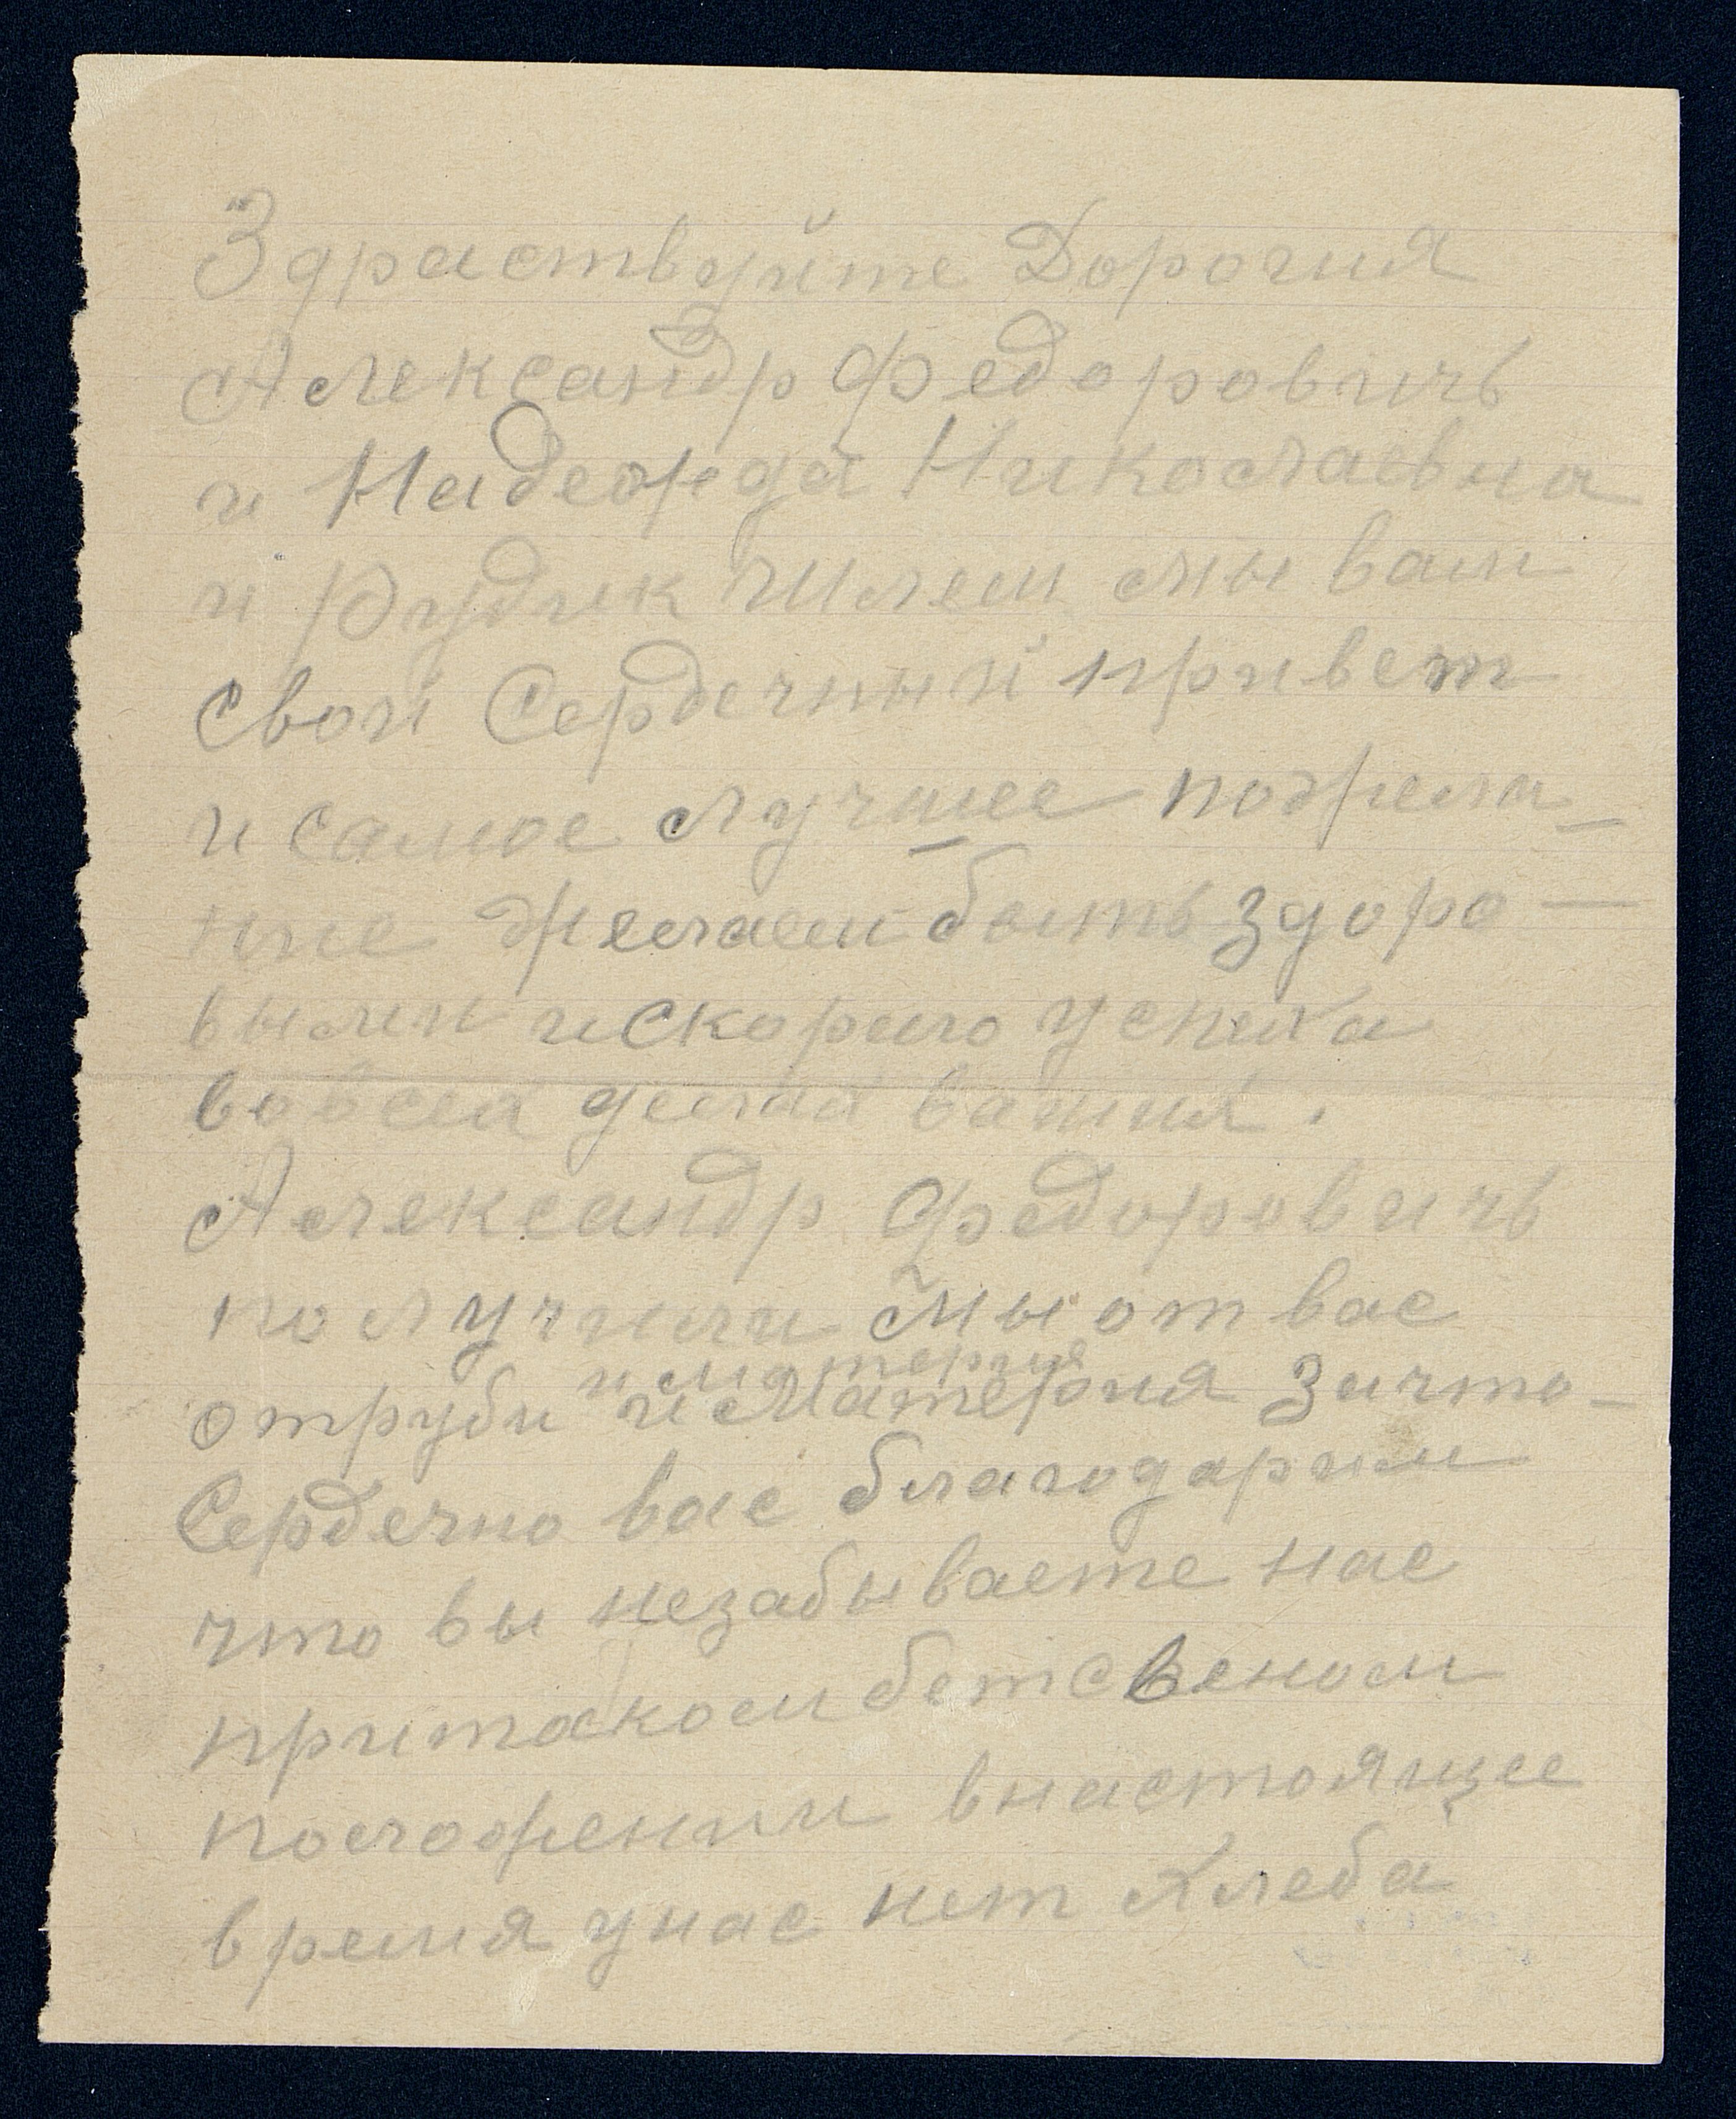 Здраствуйте Дорогия
Александр Федоровичь
и Надежда Николаевна
и Рудик Шлем мы вам
свой Сердечный привет
и самое лучшее пожела-
ние Желаем быть здоро-
выми искораго успиха
вовсех делах вашия.
Александр Федоровичь
получили мы от вас
и материя
отруби и Материя Зачто-
Сердечно вас благодарим
что вы незабываете нас
притаком бетсвеном
положении внастоящее
время унас нет Хлеба